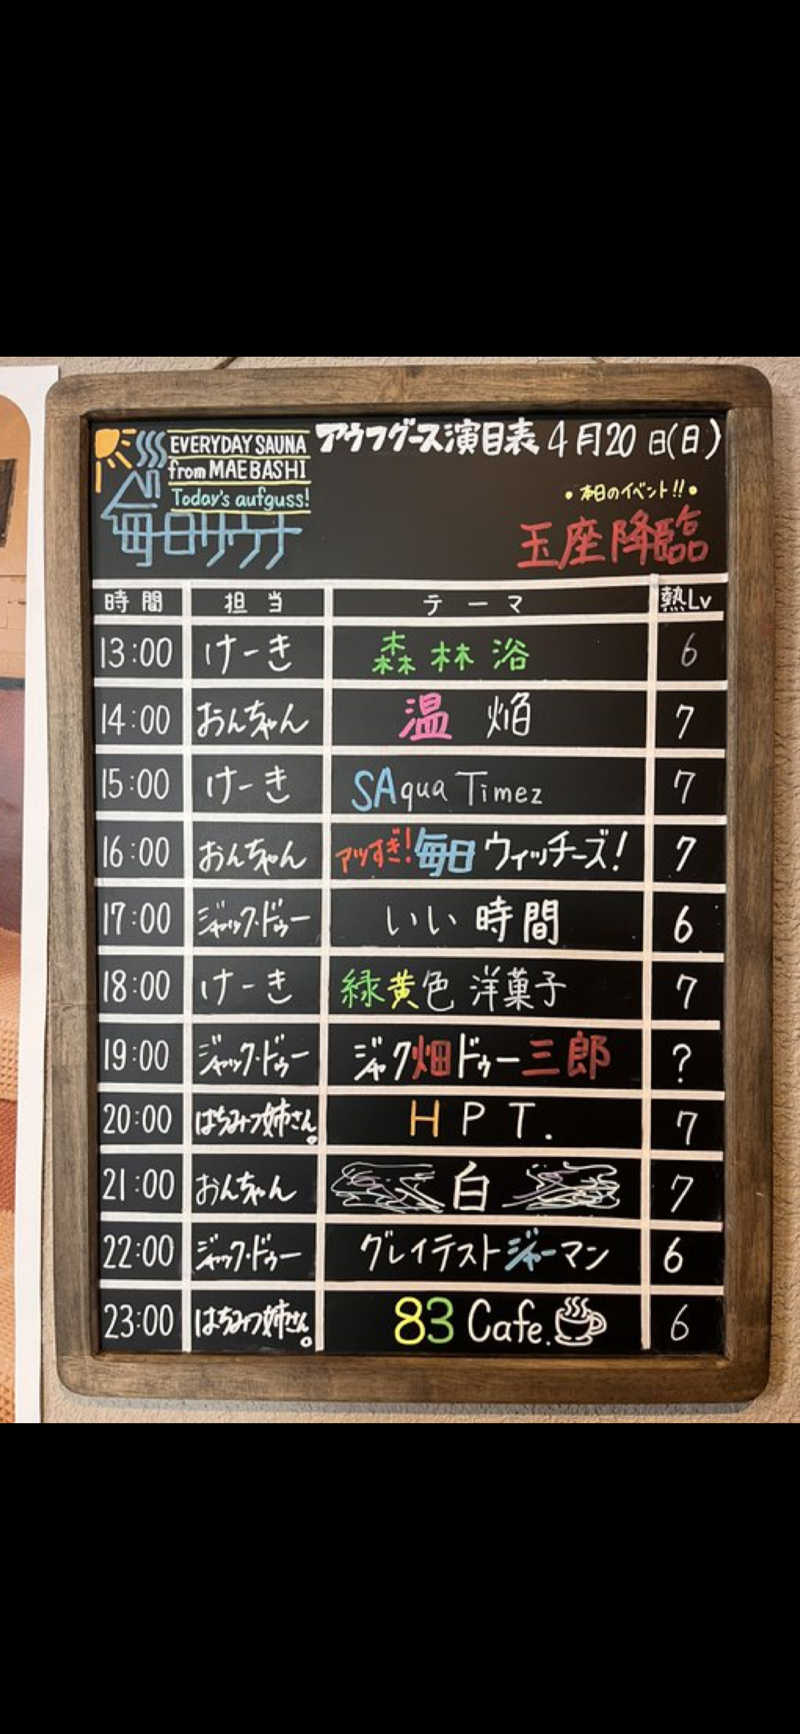 EVERYDAY SAUNA
from MAEBASHI
Today's aufguss!
毎日サウナ
アウフグース演目表 4月20日(日)
•本日のイベント!!•
玉座降臨
時間 担当 テーマ 熱Lv
13:00 けーき 森林浴 6
14:00 おんちゃん 温焔 7
15:00 けーき SAqua Timez 7
16:00 おんちゃん アツすぎ!毎日ウィッチーズ! 7
17:00 ジャック・ドゥー いい時間 6
18:00 けーき 緑黄色洋菓子 7
19:00 ジャック・ドゥー ジャク畑ドゥー三郎 ?
20:00 はちみつ姉さん。 HPT. 7
21:00 おんちゃん 白 7
22:00 ジャック・ドゥー グレイテストジャーマン 6
23:00 はちみつ姉さん。 83 Cafe. 6